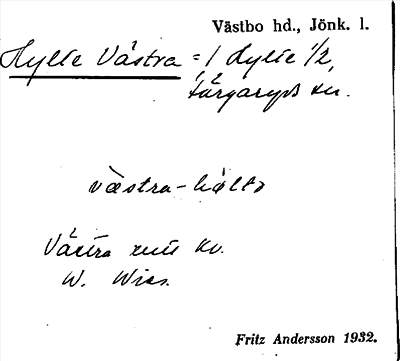 Västbo hd., Jönk. l.
Hylte Västra = 1 Hylte 1/2,
Färgaryds sn.
västra-hı̀ltə
Västra
W. Wies.
Fritz Andersson 1932.